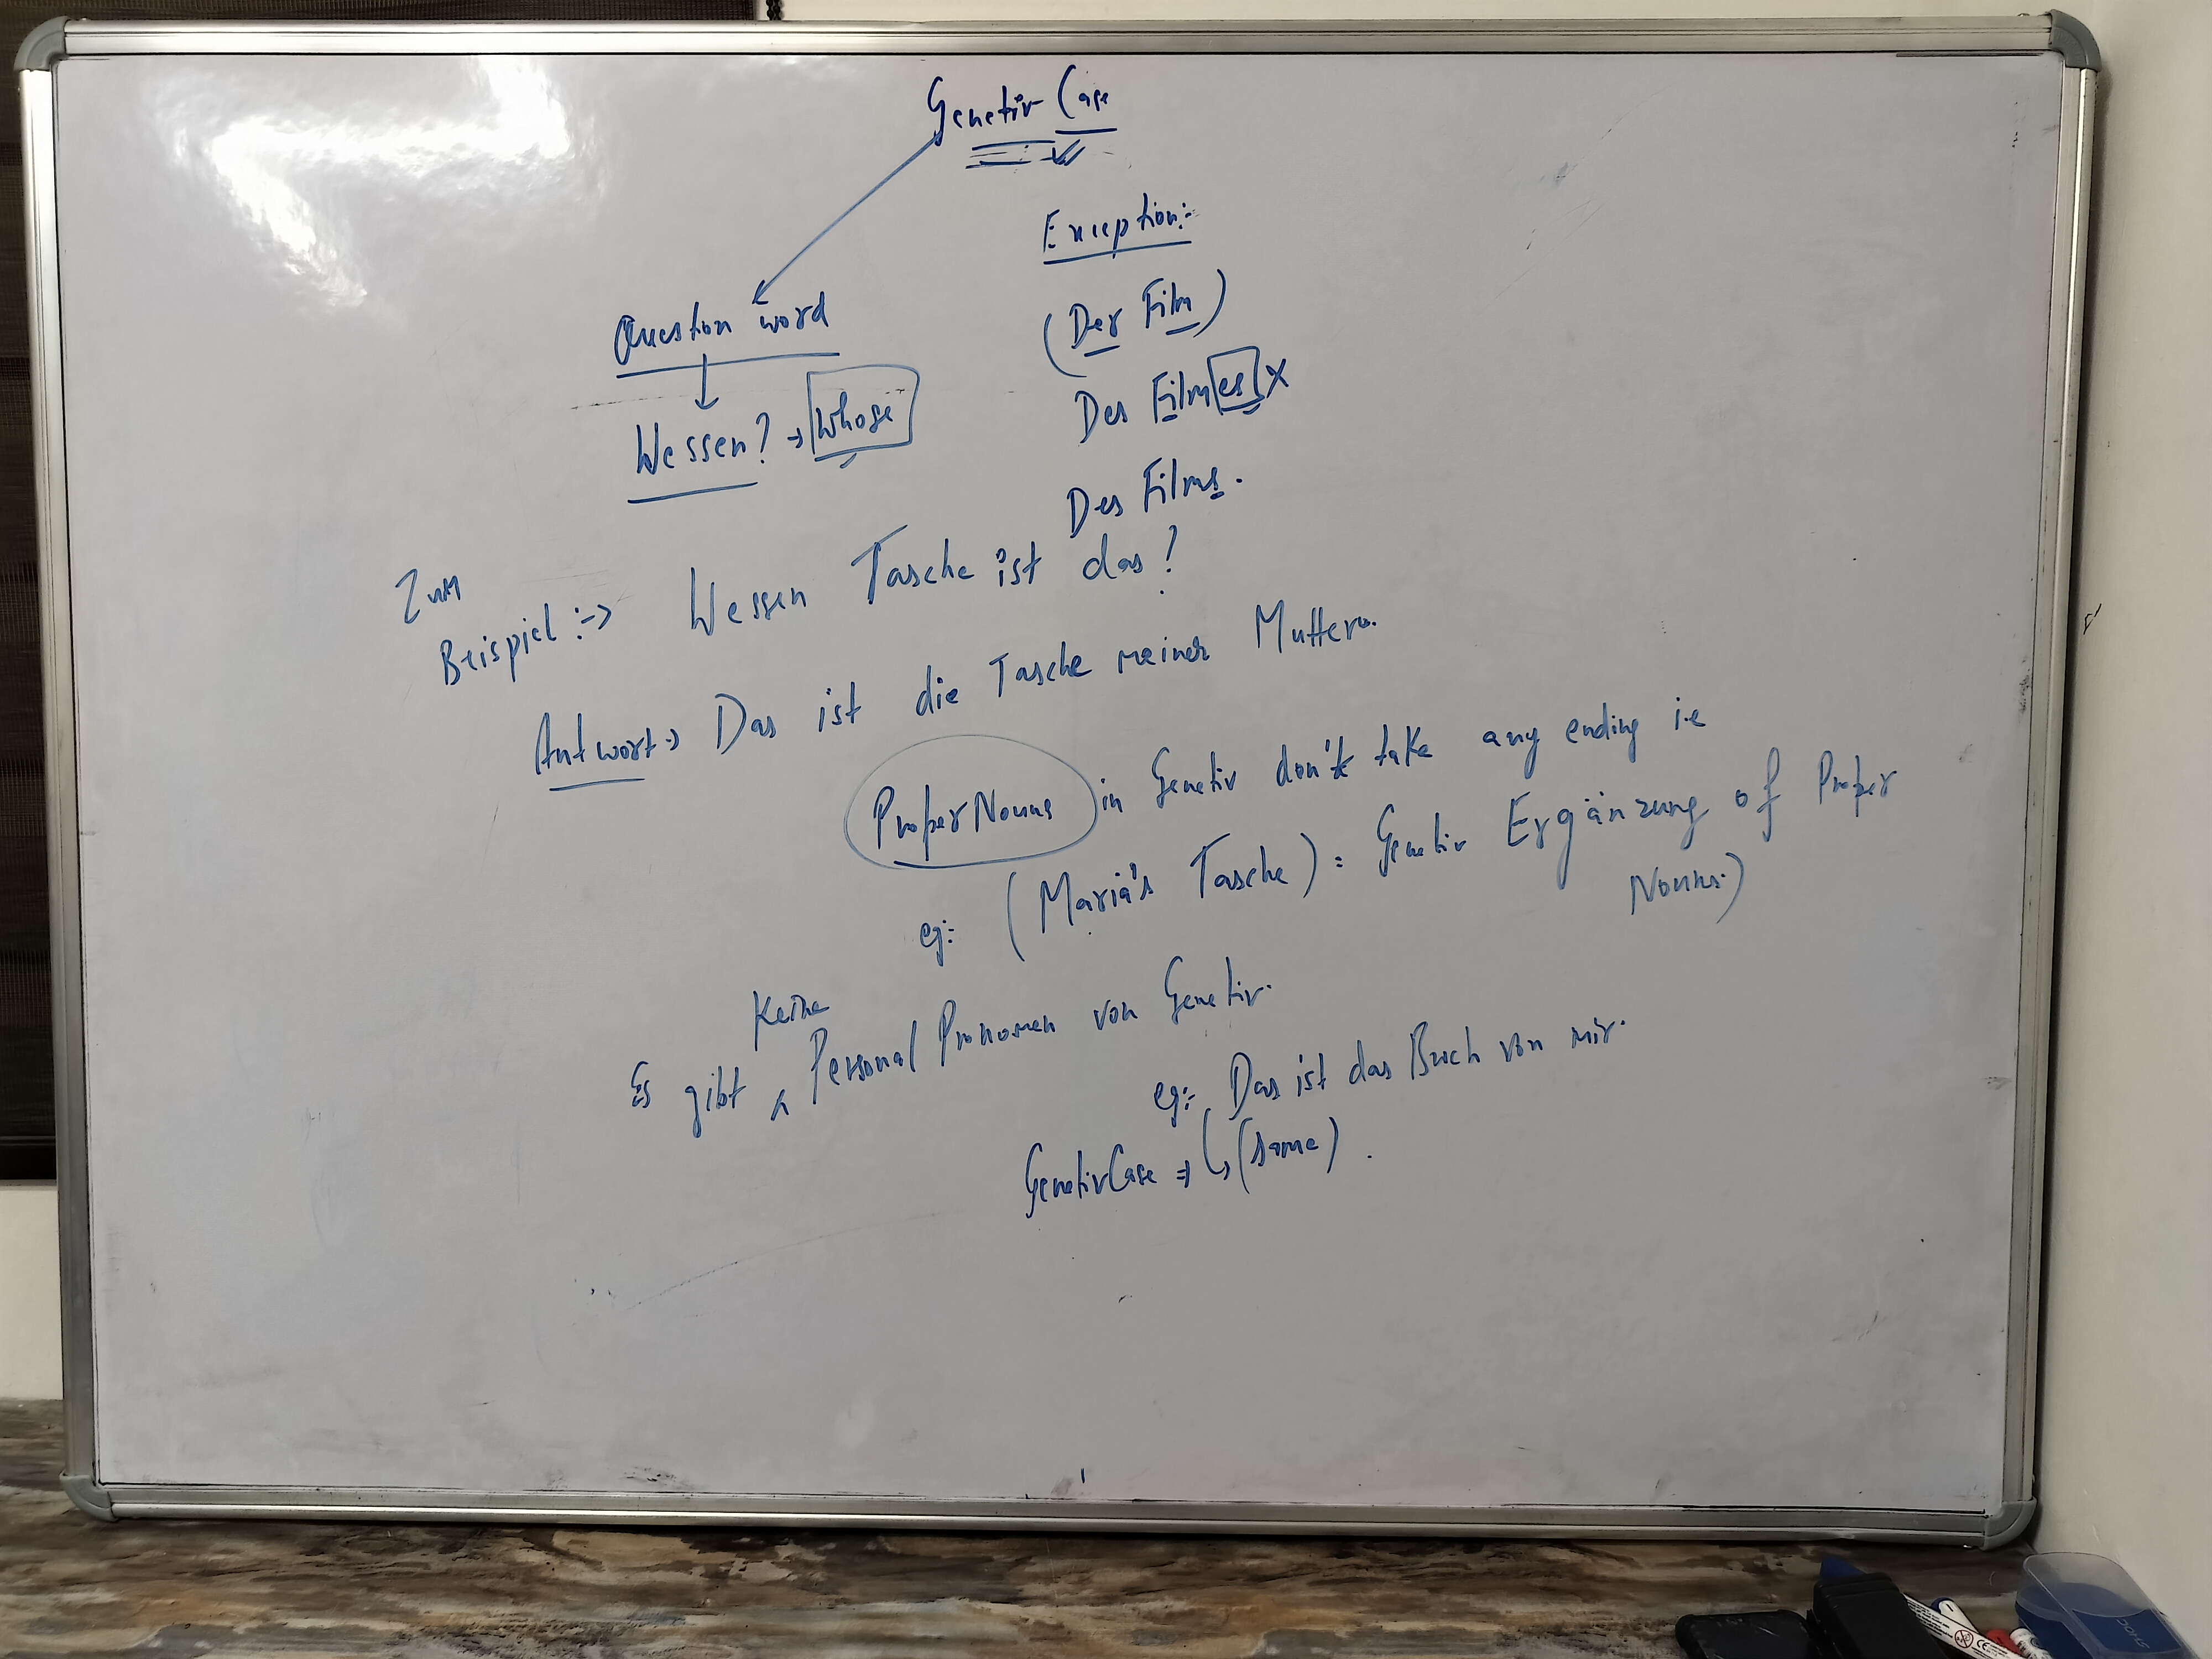 Genetiv Case
Question word
Wessen? → Whose
Exception:-
(Der Film)
Des Filmes X
Des Films.
Zum
Beispiel :-> Wessen Tasche ist das?
Antwort → Das ist die Tasche meiner Mutter.
Proper Nouns in Genetiv don't take any ending i.e
eg:- (Maria's Tasche) = Genetiv Ergänzung of Proper
Nouns.)
Keine
Es gibt ^ Personal Pronomen von Genetiv.
eg:- Das ist das Buch von mir.
Genetiv Case → ↳ (same).